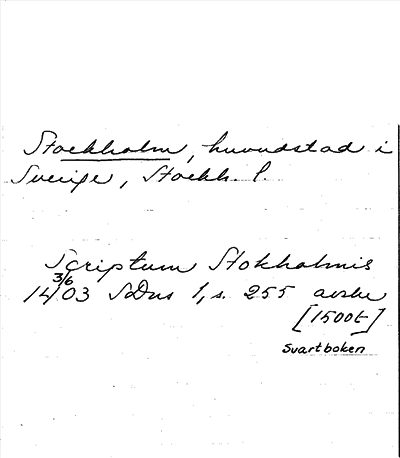 Stockholm, huvudstad i
Sverige, Stockh. l.
Scriptum Stokholmis
14 3/6 03 SDns 1, s. 255 avskr
[1500t]
Svartboken